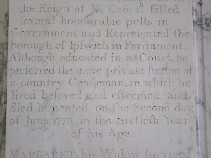 the Reign of K. Geo. filled
several honourable posts in
Government and Represented the
borough of Ipswich in Parliament.
Although educated in a Court, he
preferred the more private station of
a country Gentleman in which he
lived beloved and esteemed and
died lamented on the Second day
of June in the Sixtieth Year
of his Age.
MARGARET